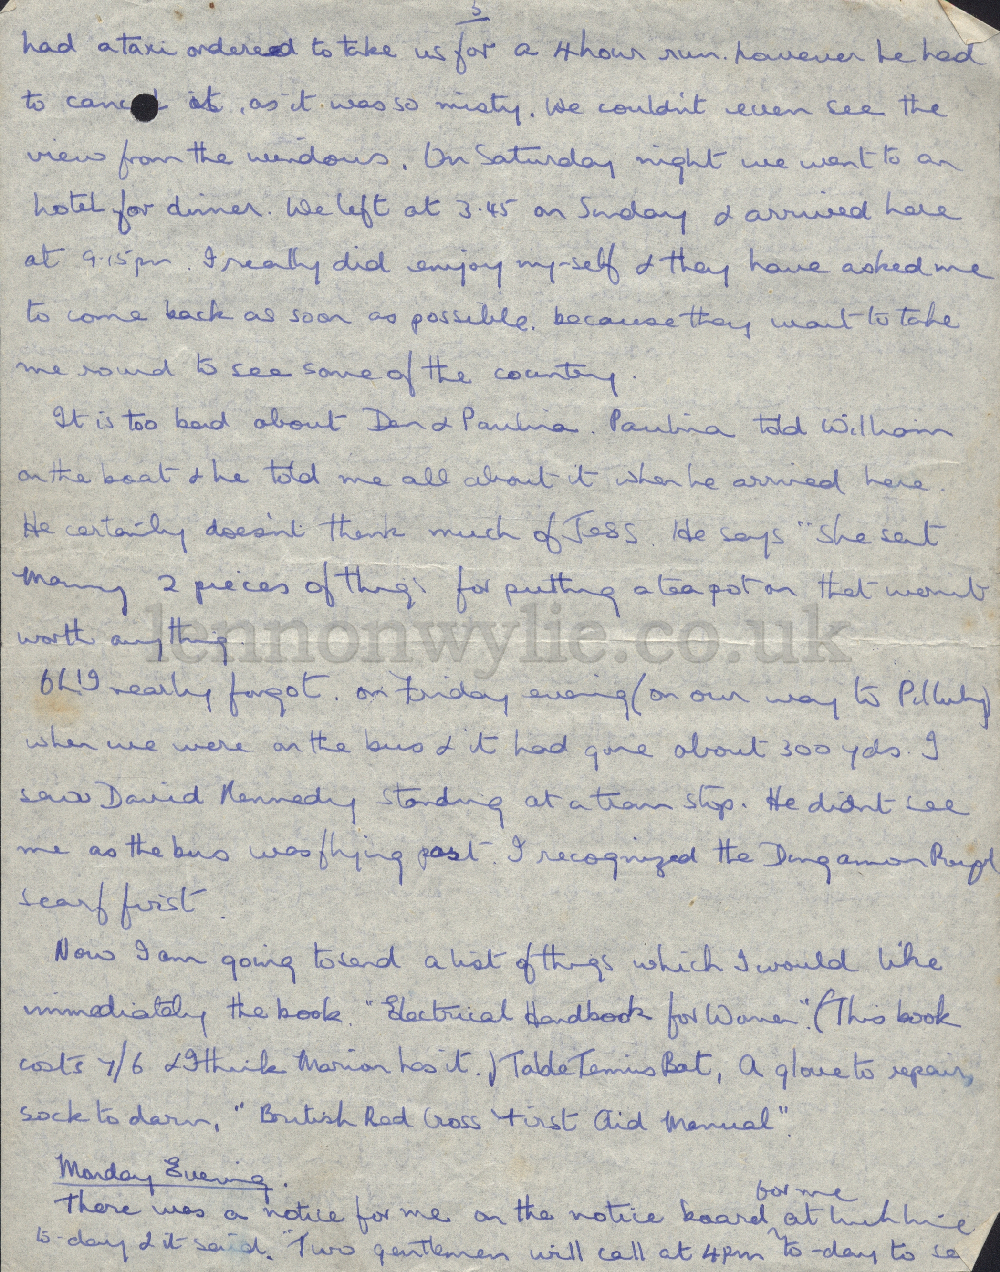 5
had a taxi ordered to take us for a 4 hour run. however he had
to cancel it, as it was so misty. We couldn't even see the
view from the windows. On Saturday night we went to an
hotel for dinner. We left at 3.45 on Sunday & arrived here
at 9.15pm. I really did enjoy my-self & they have asked me
to come back as soon as possible. because they want to take
me round to see some of the country.
It is too bad about Den & Paulina. Paulina told William
on the boat & he told me all about it when he arrived here.
He certainly doesn't think much of Jess. He says "she sent
Mammy 2 pieces of things for putting a teapot on that weren't
worth anything.
Oh! I nearly forgot. on Friday evening (on our way to
when we were on the bus & it had gone about 300 yds. I
saw David Kennedy standing at a tram stop. He didn't see
me as the bus was flying past. I recognized the Dungannon Royal
scarf first.
Now I am going to send a list of things which I would like
immediately the book. "Electrical Handbook for Women". (This book
costs 7/6 & I think Marion has it.) Table Tennis Bat, A glove to repair,
sock to darn, "British Red Cross First Aid Manual"
Monday Evening.
There was a notice for me on the notice board for me at lunch time
to-day & it said. "Two gentlemen will call at 4pm to-day to see
lennonwylie.co.uk